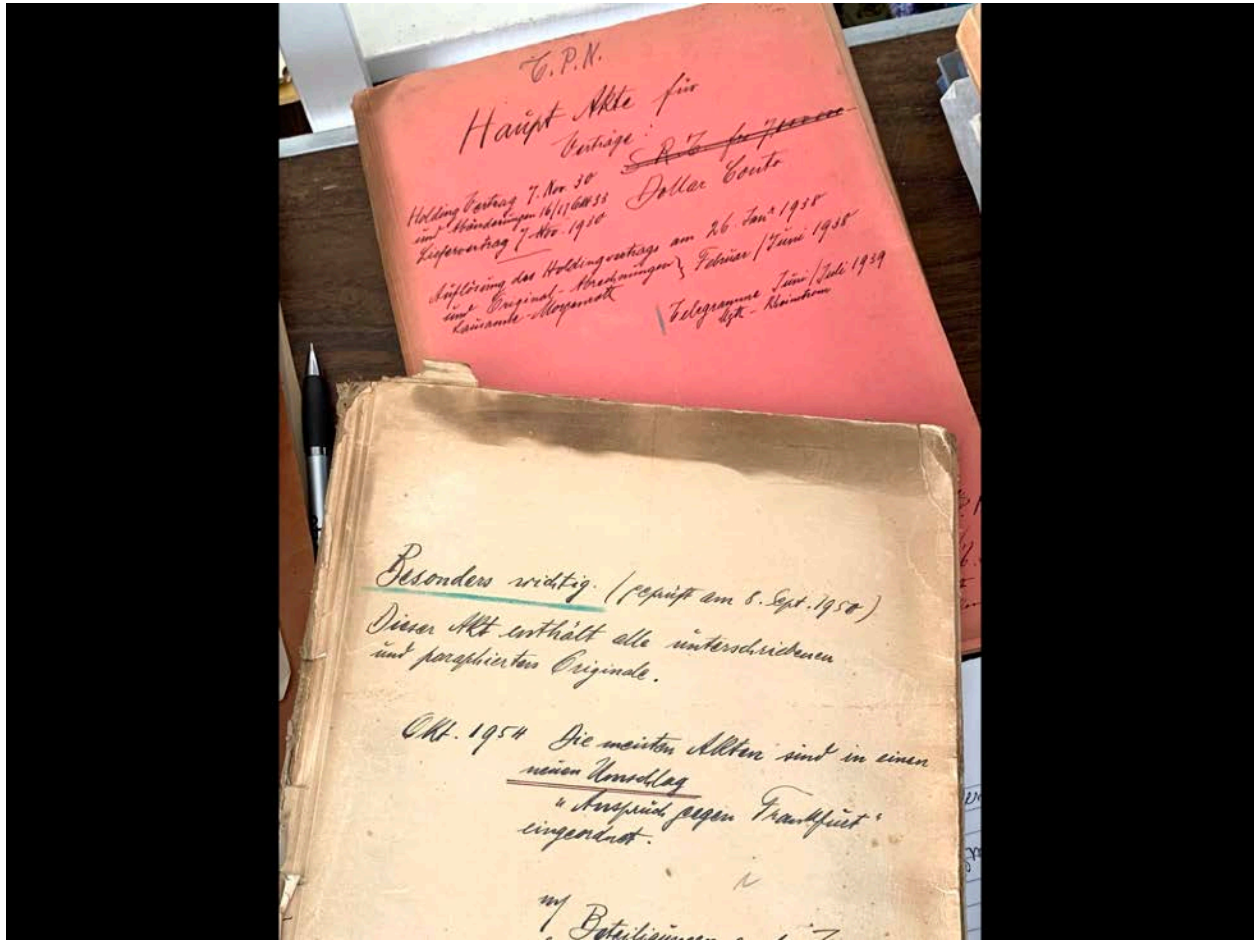 T.P.N.
Haupt Akte für
Verträge:
Dollar Conto
Holding Vertrag 7. Nov. 30
und Abänderungen 16/17 Okt 33
Liefervertrag 7. Nov. 1930
Auflösung des Holdingvertrags am 26. Jan. 1938
und Original-Abrechnungen } Februar / Juni 1938
Lausanne-Morgenroth
Telegramme Juni / Juli 1939
Rheinstrom
Besonders wichtig. (geprüft am 8. Sept. 1950)
Dieser Akt enthält alle unterschriebenen
und paraphierten Originale.
Okt. 1954 Die meisten Akten sind in einen
neuen Umschlag
"Anspruch gegen Frankfurt"
eingeordnet.
Beteiligungen